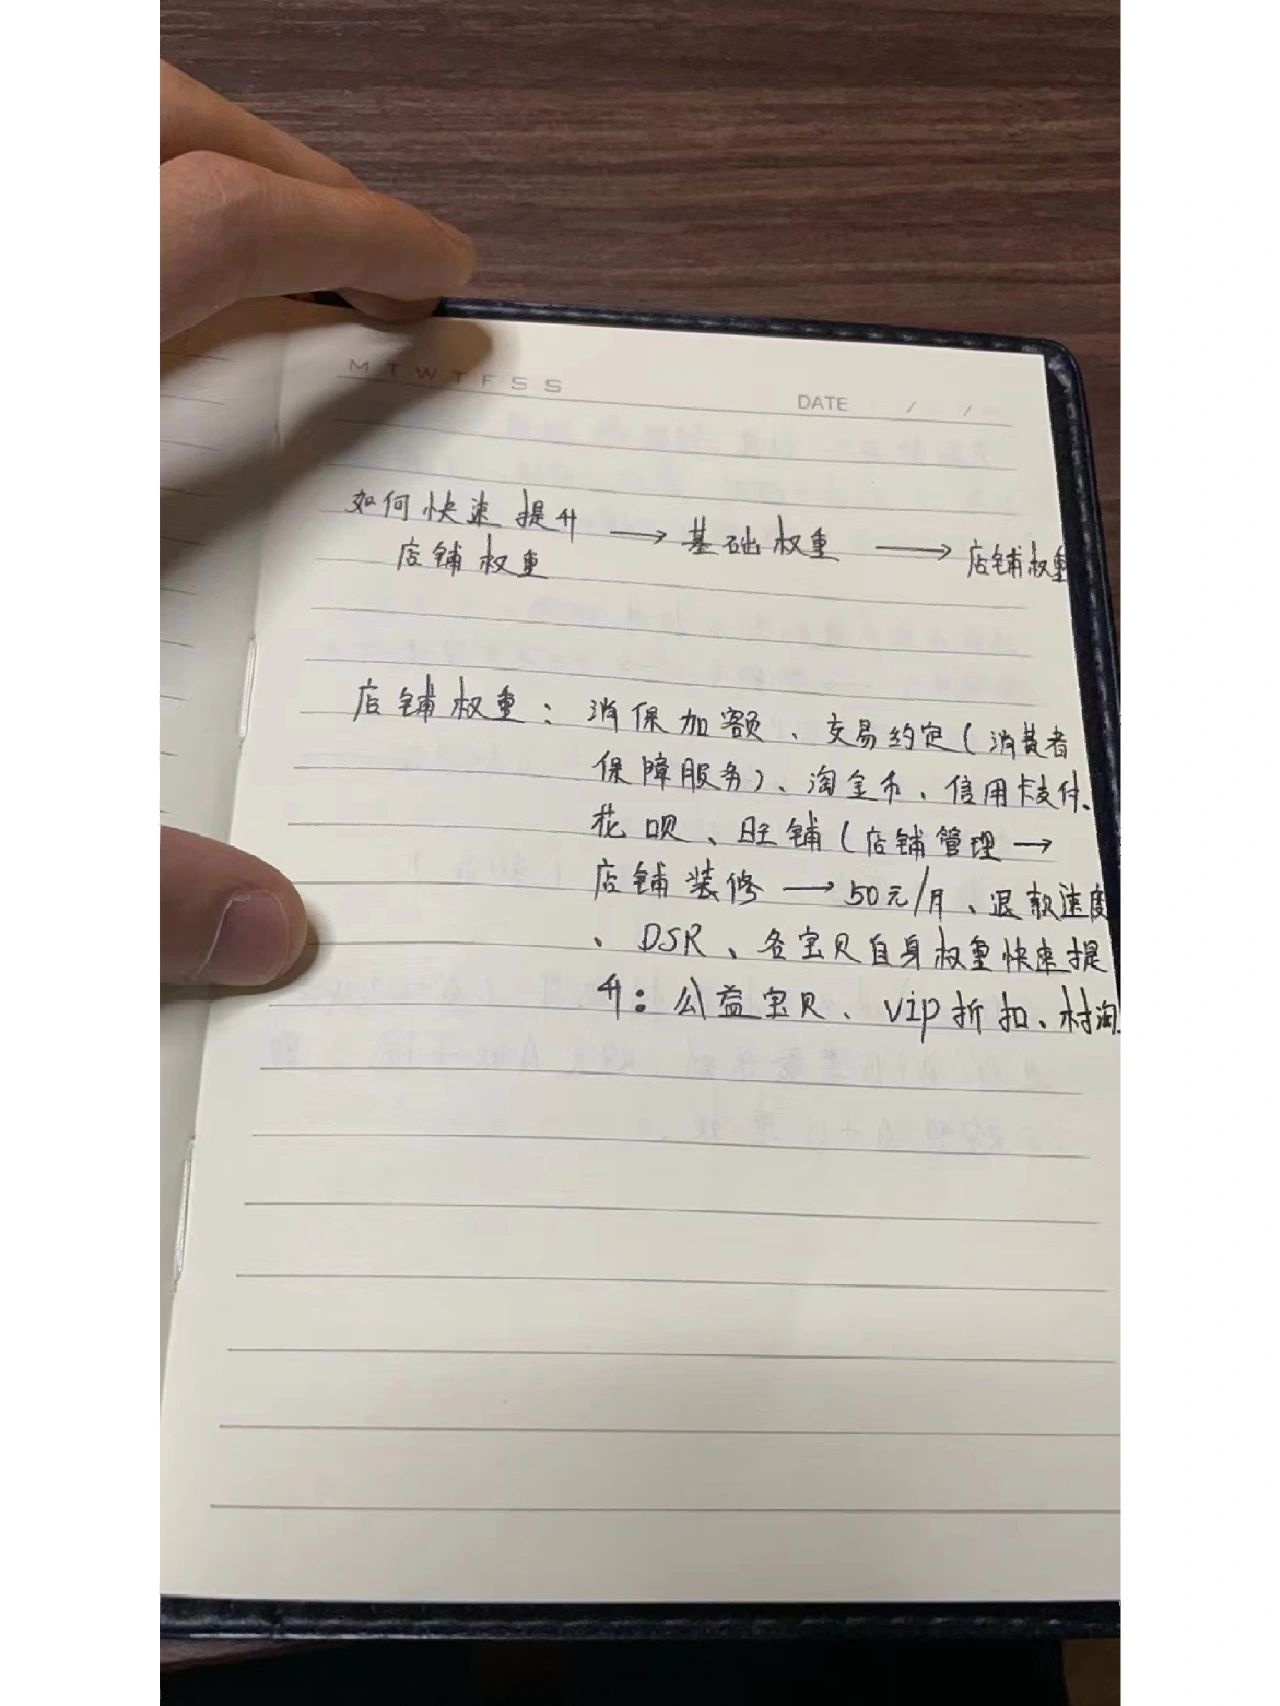 M T W T F S S
DATE / /
如何快速提升 → 基础权重 → 店铺权重
店铺权重
店铺权重：消保加额、交易约定(消费者
保障服务)、淘金币、信用卡支付、
花呗、旺铺(店铺管理→
店铺装修→50元/月、退款速度
、DSR、各宝贝自身权重快速提
升：公益宝贝、vip折扣、村淘